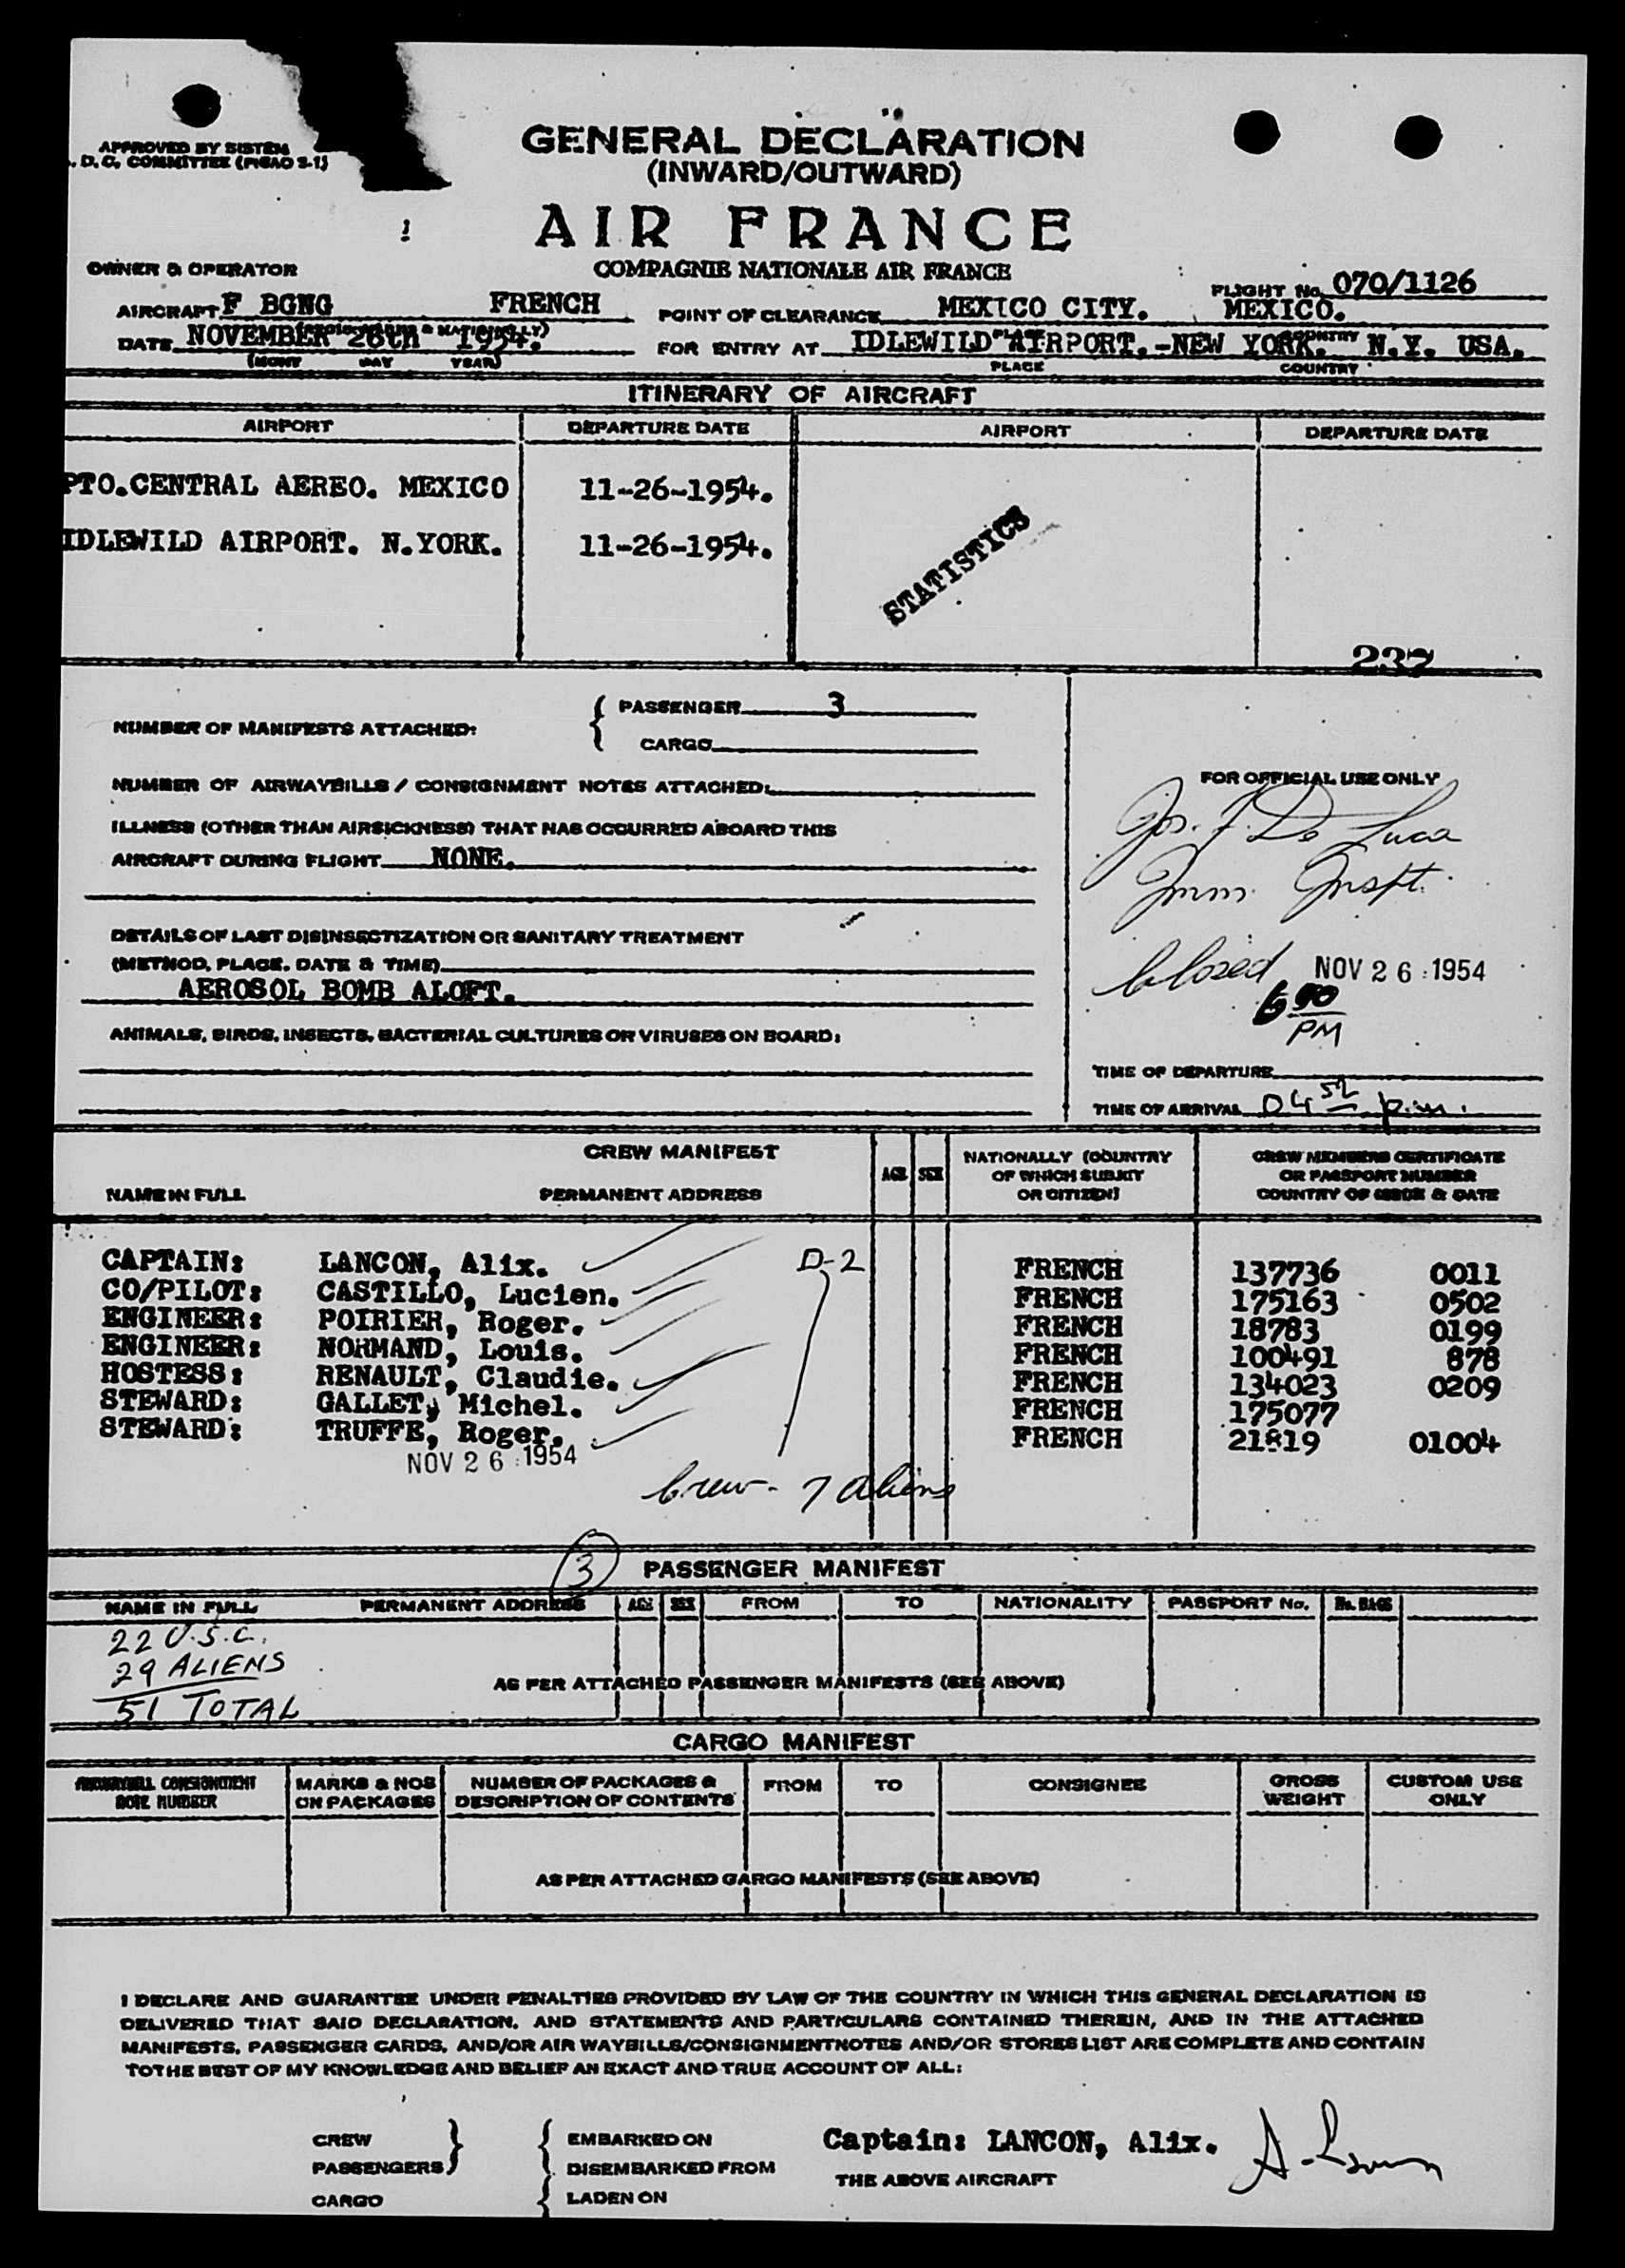 APPROVED BY SISTEM
. D. C. COMMITTEE (PICAO 2-1)
GENERAL DECLARATION
(INWARD/OUTWARD)
AIR FRANCE
COMPAGNIE NATIONALE AIR FRANCE
OWNER & OPERATOR
FLIGHT No. 070/1126
AIRCRAFT F BGNG FRENCH
POINT OF CLEARANCE MEXICO CITY. MEXICO.
PLACE COUNTRY
DATE NOVEMBER 26th 1954.
(MONT DAY YEAR)
FOR ENTRY AT IDLEWILD AIRPORT.-NEW YORK. N.Y. USA.
PLACE COUNTRY
ITINERARY OF AIRCRAFT
AIRPORT DEPARTURE DATE AIRPORT DEPARTURE DATE
PTO.CENTRAL AEREO. MEXICO 11-26-1954.
IDLEWILD AIRPORT. N.YORK. 11-26-1954.
STATISTICS
232
NUMBER OF MANIFESTS ATTACHED:
PASSENGER 3
CARGO
NUMBER OF AIRWAYBILLS / CONSIGNMENT NOTES ATTACHED:
ILLNESS (OTHER THAN AIRSICKNESS) THAT HAS OCCURRED ABOARD THIS
AIRCRAFT DURING FLIGHT NONE.
DETAILS OF LAST DISINSECTIZATION OR SANITARY TREATMENT
(METHOD, PLACE. DATE & TIME)
AEROSOL BOMB ALOFT.
ANIMALS, BIRDS, INSECTS, BACTERIAL CULTURES OR VIRUSES ON BOARD:
FOR OFFICIAL USE ONLY
Jos. F. De Luca
Imm. Inspt.
Closed NOV 26 1954
PM
TIME OF DEPARTURE
TIME OF ARRIVAL 04 52 p.m.
CREW MANIFEST
NAME IN FULL PERMANENT ADDRESS AGE SEX
NATIONALLY (COUNTRY
OF WHICH SUBJKT
OR CITIZEN)
CREW MEMBERS CERTIFICATE
OR PASSPORT NUMBER
COUNTRY OF ISSUE & DATE
CAPTAIN: LANCON, Alix. D-2 FRENCH 137736 0011
CO/PILOT: CASTILLO, Lucien. FRENCH 175163 0502
ENGINEER: POIRIER, Roger. FRENCH 18783 0199
ENGINEER: NORMAND, Louis. FRENCH 100491 878
HOSTESS: RENAULT, Claudie. FRENCH 134023 0209
STEWARD: GALLET, Michel. FRENCH 175077
STEWARD: TRUFFE, Roger. FRENCH 21819 01004
NOV 26 1954
Crew - 7 aliens
3
PASSENGER MANIFEST
NAME IN FULL PERMANENT ADDRESS AGE SEX FROM TO NATIONALITY PASSPORT No. No. BAGS
22 U.S.C.
29 ALIENS
51 TOTAL
AS PER ATTACHED PASSENGER MANIFESTS (SEE ABOVE)
CARGO MANIFEST
AIRWAYBILL CONSIGNMENT
NOTE NUMBER
MARKS & NOS
ON PACKAGES
NUMBER OF PACKAGES &
DESCRIPTION OF CONTENTS
FROM TO CONSIGNEE
GROSS
WEIGHT
CUSTOM USE
ONLY
AS PER ATTACHED CARGO MANIFESTS (SEE ABOVE)
I DECLARE AND GUARANTEE UNDER PENALTIES PROVIDED BY LAW OF THE COUNTRY IN WHICH THIS GENERAL DECLARATION IS
DELIVERED THAT SAID DECLARATION, AND STATEMENTS AND PARTICULARS CONTAINED THEREIN, AND IN THE ATTACHED
MANIFESTS, PASSENGER CARDS, AND/OR AIR WAYBILLS/CONSIGNMENTNOTES AND/OR STORES LIST ARE COMPLETE AND CONTAIN
TOTHE BEST OF MY KNOWLEDGE AND BELIEF AN EXACT AND TRUE ACCOUNT OF ALL:
CREW
PASSENGERS
CARGO
EMBARKED ON
DISEMBARKED FROM
LADEN ON
Captain: LANCON, Alix.
THE ABOVE AIRCRAFT